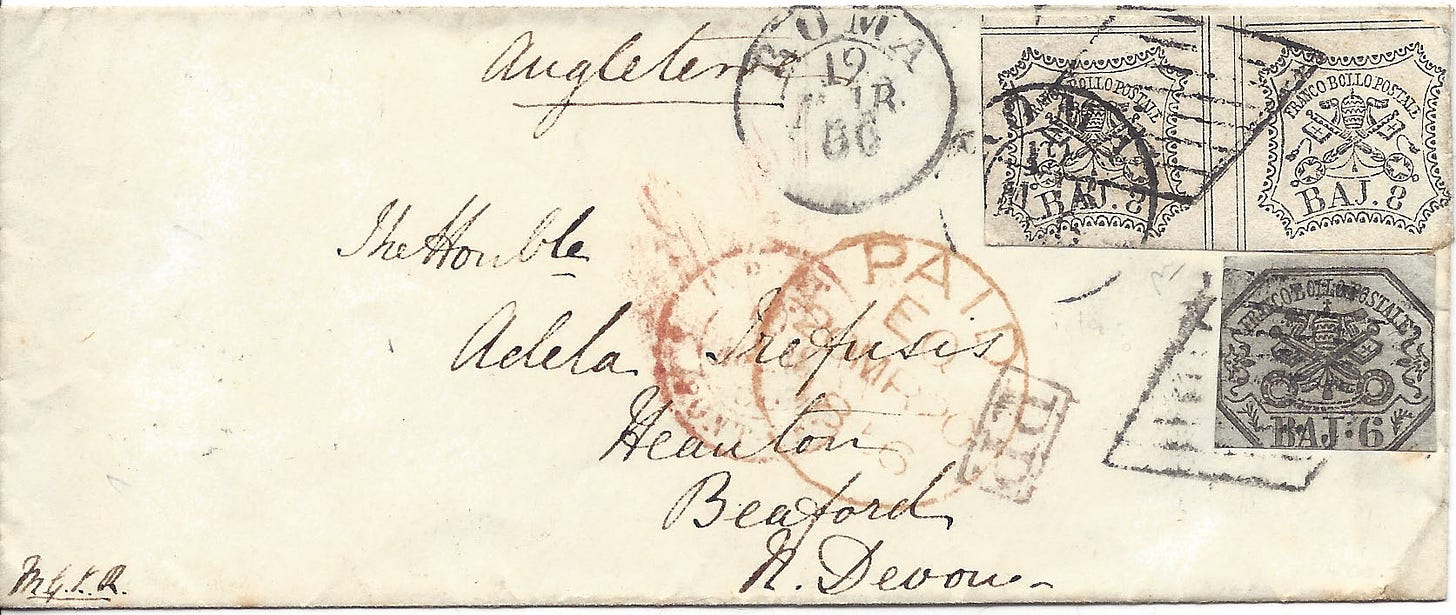 Angleterre
ROMA
19
66
FRANCO BOLLO POSTALE
BAJ. 8
FRANCO BOLLO POSTALE
BAJ. 8
The Honble
Adela Trefusis
Heanton
Beaford
N. Devon
PAID
PD
FRANCO BOLLO POSTALE
BAJ: 6